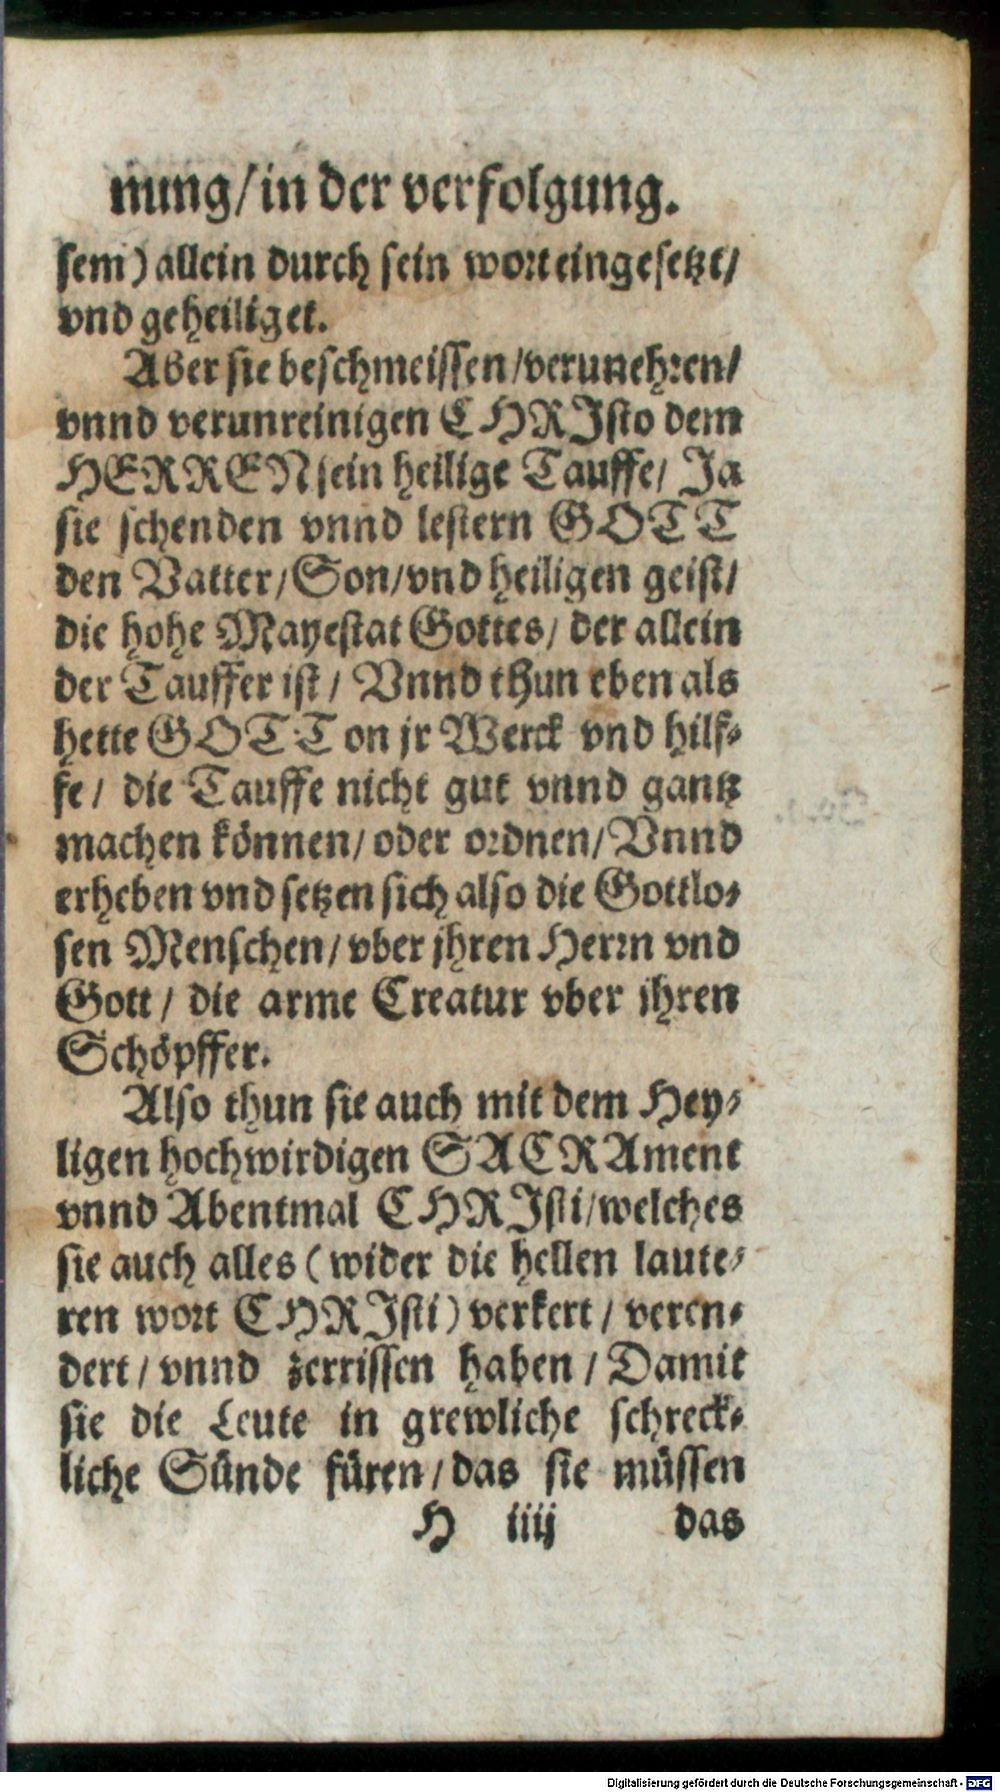 nung/in der verfolgung.
sem) allein durch sein wort eingesetzt/
vnd geheiliget.
Aber sie beschmeissen/verunehren/
vnnd verunreinigen CHRIsto dem
HERREN sein heilige Tauffe/ Ja
sie schenden vnnd lestern GOTT
den Vatter/Son/vnd heiligen geist/
die hohe Mayestat Gottes/ der allein
der Tauffer ist/ Vnnd thun eben als
hette GOTT on jr Werck vnd hilf-
fe/ die Tauffe nicht gut vnnd gantz
machen können/oder ordnen/Vnnd
erheben vnd setzen sich also die Gottlo-
sen Menschen/vber jhren Herrn vnd
Gott/ die arme Creatur vber jhren
Schöpffer.
Also thun sie auch mit dem Hey-
ligen hochwirdigen SACRAment
vnnd Abentmal CHRIsti/welches
sie auch alles (wider die hellen laute-
ren wort CHRIsti) verkert/ veren-
dert/vnnd zerrissen haben/Damit
sie die Leute in grewliche schreck-
liche Sünde füren/das sie müssen
H iiij das
Digitalisierung gefördert durch die Deutsche Forschungsgemeinschaft - DFG